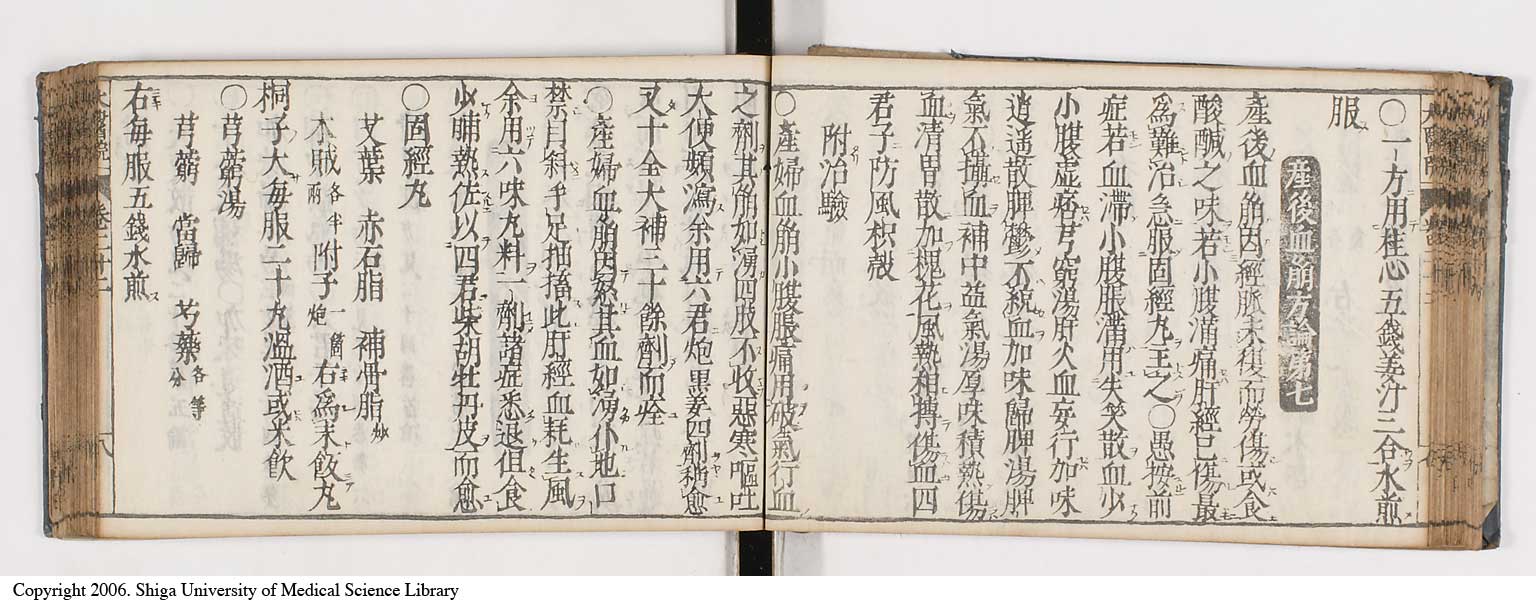 〇一方用桂心五錢姜汁三合水煎
服
産後血崩方論第七
産後血崩因經脈未復而勞傷或食
酸鹹之味若小腹滿痛肝經已傷最
爲難治急服固經丸主之〇愚按前
症若血滯小腹脹滿用失笑散血少
小腹虛痞芎藭湯肝火血妄行加味
逍遥散脾鬱不統血加味歸脾湯脾
氣不攝血補中益氣湯厚味積熱傷
血清胃散加槐花風熱相搏傷血四
君子防風枳殼
附治驗
〇産婦血崩小腹脹痛用破氣行血
之劑其崩如湧四肢不收惡寒嘔吐
大便頻瀉余用六君炮黑姜四劑稍愈
又十全大補三十餘劑而痊
〇産婦血崩因怒其血如湧仆地口
禁目斜手足抽搐此肝經血耗生風
余用六味丸料一劑諸症悉退但食
少晡熱佐以四君柴胡牡丹皮而愈
〇固經丸
艾葉 赤石脂 補骨脂炒
木賊各半兩 附子炮一箇 右爲末飯丸
桐子大每服二十丸溫酒或米飮
〇芎藭湯
芎藭 當歸 芍藥各等分
右每服五錢水煎
Copyright 2006. Shiga University of Medical Science Library